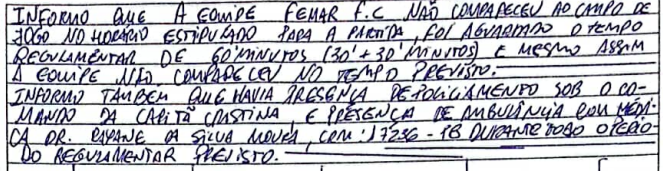 INFORMO QUE A EQUIPE FEMAR F.C NÃO COMPARECEU AO CAMPO DE
JOGO NO HORÁRIO ESTIPULADO PARA A PARTIDA, FOI AGUARDADO O TEMPO
REGULAMENTAR DE 60 MINUTOS (30' + 30' MINUTOS) E MESMO ASSIM
A EQUIPE NÃO COMPARECEU NO TEMPO PREVISTO.
INFORMO TAMBEM QUE HAVIA PRESENÇA DE POLICIAMENTO SOB O CO-
MANDO DA CAPITÃ CRISTINA, E PRESENÇA DE AMBULÂNCIA COM MÉDI-
CA DR. RAYANE DA SILVA MOURA, CRM: 17236 - PB DURANTE TODO O PERÍO-
DO REGULAMENTAR PREVISTO.